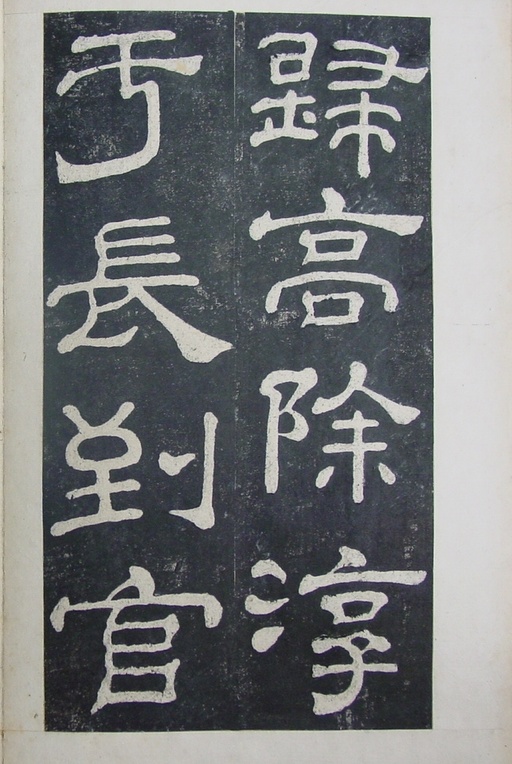 歸高除淳
于長到官